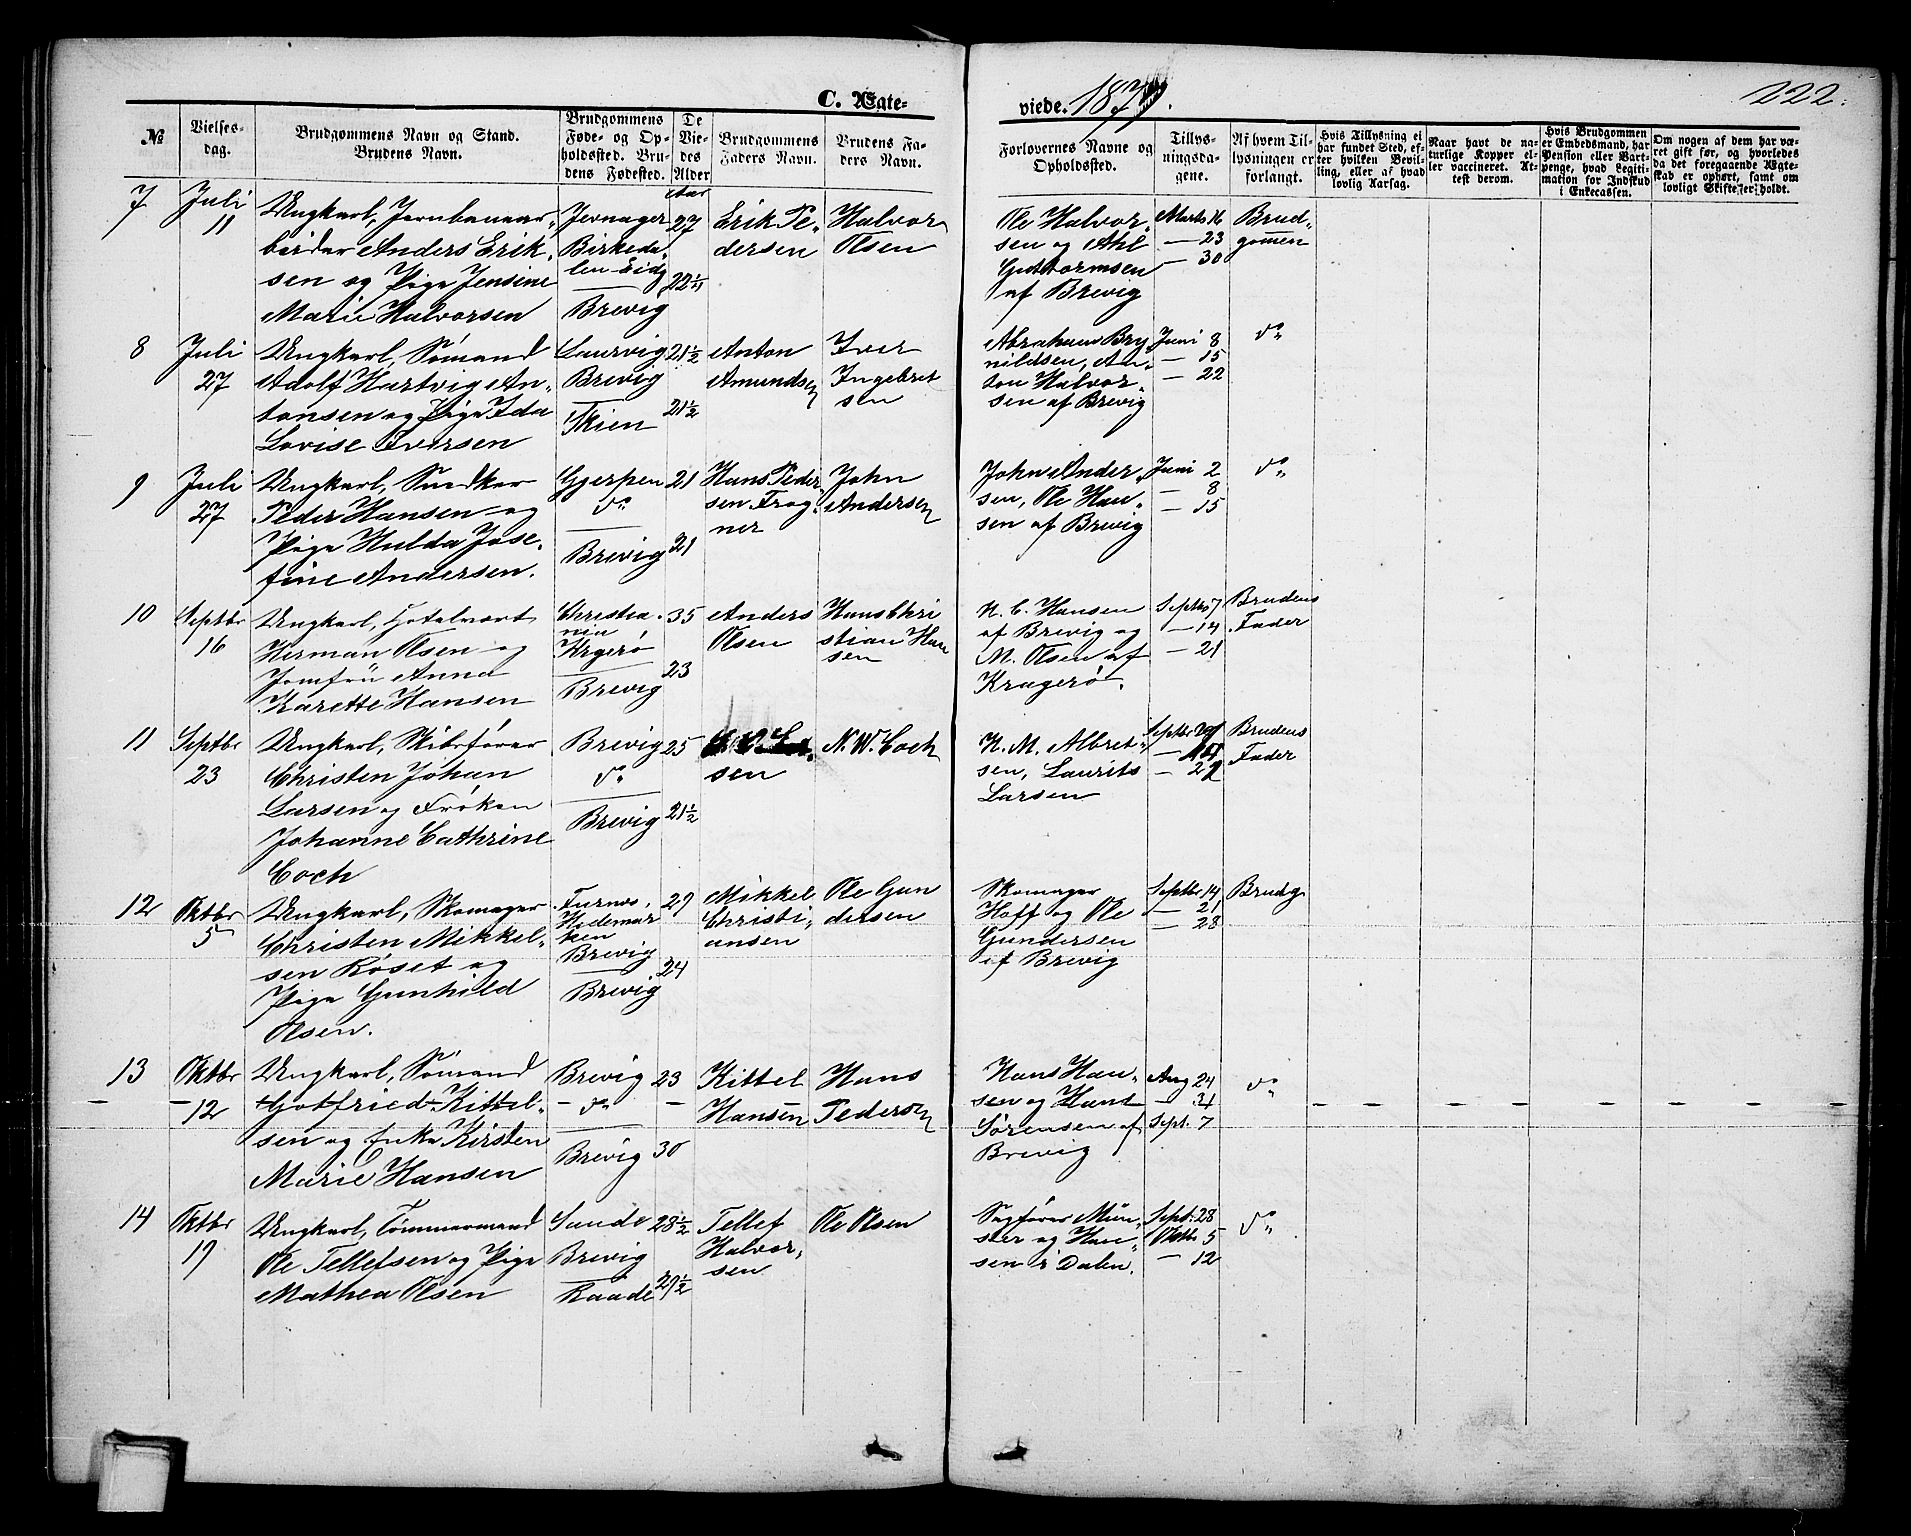 C.Ægte-
viede. 1879.
222.
№
Vielses-
dag.
Brudgommens Navn og Stand.
Brudens Navn.
Brudgommens
Føde- og Op-
holdssted. Bru-
dens Fødested.
De
Vie-
des
Alder
Brudgommens
Faders Navn.
Brudens Fa-
ders Navn.
Forlovernes Navne og
Opholdssted.
Tillys-
ningsda-
gene.
Af hvem Til-
lysningen er
forlangt.
Hvis Tillysning ei
har fundet Sted, ef-
ter hvilken Bevil-
ling, eller af hvad
lovlig Aarsag.
Naar havt de na-
turlige Kopper el-
ler vaccineret. At-
test derom.
Hvis Brudgommen
er Embedsmand, har
Pension eller Vart-
penge, hvad Legiti-
mation for Indskud
i Enkecassen.
Om nogen af dem har væ-
ret gift før, og hvorledes
da det foregaaende Ægte-
skab er ophørt, samt om
lovligt Skifte er holdt.
7
Juli
11
Ungkarl, Jernbanear-
beider Anders Erik-
sen og Pige Jensine
Marie Halvorsen
Jevnager
Birkeda-
len Eid
Brevig
Aar
27
22 1/4
Erik Pe-
dersen
Halvor
Olsen
Ole Halvor-
sen og Ahl
Guttormsen
af Brevig
Marts 16
— 23
— 30
Brud-
gomen
8
Juli
27
Ungkarl, Sömand
Adolf Hartvig An-
tonsen og Pige Ida
Lovise Iversen
Laurvig
Brevig
Skien
21 1/2
21 1/2
Anton
Amundsen
Iver
Ingebret
sen
Abraham Bry
nildsen, An-
ton Halvor-
sen af Brevig
Juni 8
— 15
— 22
do
9
Juli
27
Ungkarl, Snedker
Peder Hansen og
Pige Hulda Jose-
fine Andersen.
Gjerpen
do
Brevig
21
21
Hans Peder
sen Frog-
ner
John
Andersen
John Ander-
sen, Ole Han-
sen af Brevig
Juni 2
— 8
— 15
do
10
Septbr
16
Ungkarl, Hotelvært
Herman Olsen og
Jomfru Anna
Karette Hansen
Christia-
nia
Krgerö
Brevig
35
23
Anders
Olsen
Hans Chri
stian Han
sen
H. C. Hansen
af Brevig og
M. Olsen af
Kragerö.
Septbr 7
— 14
— 21
Brudens
Fader
11
Septbr
23
Ungkarl, Skibsförer
Christen Johan
Larsen og Fröken
Johanne Cathrine
Coch
Brevig
do
Brevig
25
21 1/2
sen
N. W. Coch
H. M. Albret-
sen, Laurits
Larsen
Septbr
Brudens
Fader
12
Oktbr
5
Ungkarl, Skomager
Christen Mikkel-
sen Röset og
Pige Gunhild
Olsen.
Furnes,
Hedemar
ken
Brevig
Brevig
29
24
Mikkel
Christi-
ansen
Ole Gun
dersen
Skomager
Hoff og Ole
Gundersen
af Brevig
Septbr 14
— 21
— 28
Brudg
13
Oktbr
12
Ungkarl, Sömand
Gotfried Kittel-
sen og Enke Kirsten
Marie Hansen
Brevig
do
Brevig
23
30
Kittel
Hansen
Hans
Pedersen
Hans Han-
sen og Hans
Sörensen af
Brevig
Aug 24
— 31
Sept. 7
do
14
Oktbr
19
Ungkarl, Tömmermand
Ole Tellefsen og Pige
Mathea Olsen
Sande
Brevig
Raade
28 1/2
29 1/2
Tellef
Halvor-
sen
Ole Olsen
Sagförer Mün-
ster og Han-
sen i Dalen.
Sept: 28
Oktb 5
— 12
do